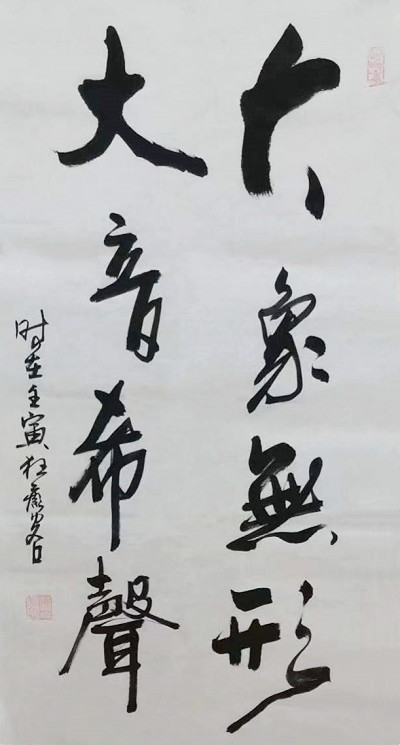 大象無形
大音希聲
时在壬寅狂